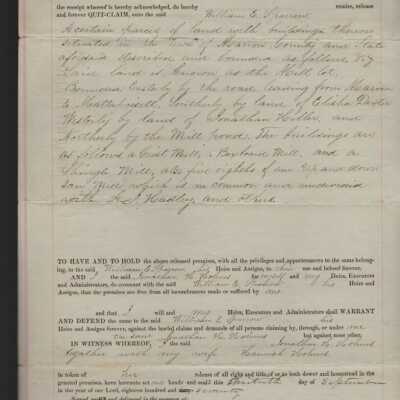 the receipt whereof is hereby acknowledged, do hereby remise, release
and forever QUIT-CLAIM, unto the said William E. Sparrow
A certain parcel of land with buildings thereon
situated in the Town of Marion County and State
aforesaid described and bounded as follows viz
Said land is known as the Mill lot.
Bounded Easterly by the road leading from Marion
to Mattapoisett, Southerly by land of Elisha
Westerly by land of Jonathan Hiller, and
Northerly by the Mill pond. The buildings are
as follows a Grist Mill, Boxboard Mill, and a
Shingle Mill, also five eighths of an up and down
Saw Mill which is in common and undivided
with Hadley and
TO HAVE AND TO HOLD the above released premises, with all the privileges and appurtenances to the same belong-
ing, to the said William E. Sparrow his Heirs and Assigns, to their use and behoof forever.
AND I the said Jonathan H. Holmes for myself and my Heirs, Executors
and Administrators, do covenant with the said William E. Sparrow his Heirs and
Assigns, that the premises are free from all incumbrances made or suffered by me
and that I will and my Heirs, Executors and Administrators shall WARRANT
AND DEFEND the same to the said William E. Sparrow his
Heirs and Assigns forever, against the lawful claims and demands of all persons claiming by, through, or under me
the said Jonathan H. Holmes but against none other.
IN WITNESS WHEREOF, I the said Jonathan H. Holmes
together with my wife Hannah Holmes
in token of her release of all right and title of or to both dower and homestead in the
granted premises, have hereunto set our hands and seals this day of September
in the year of our Lord, eighteen hundred and seventy
Signed sealed and delivered in the presence of